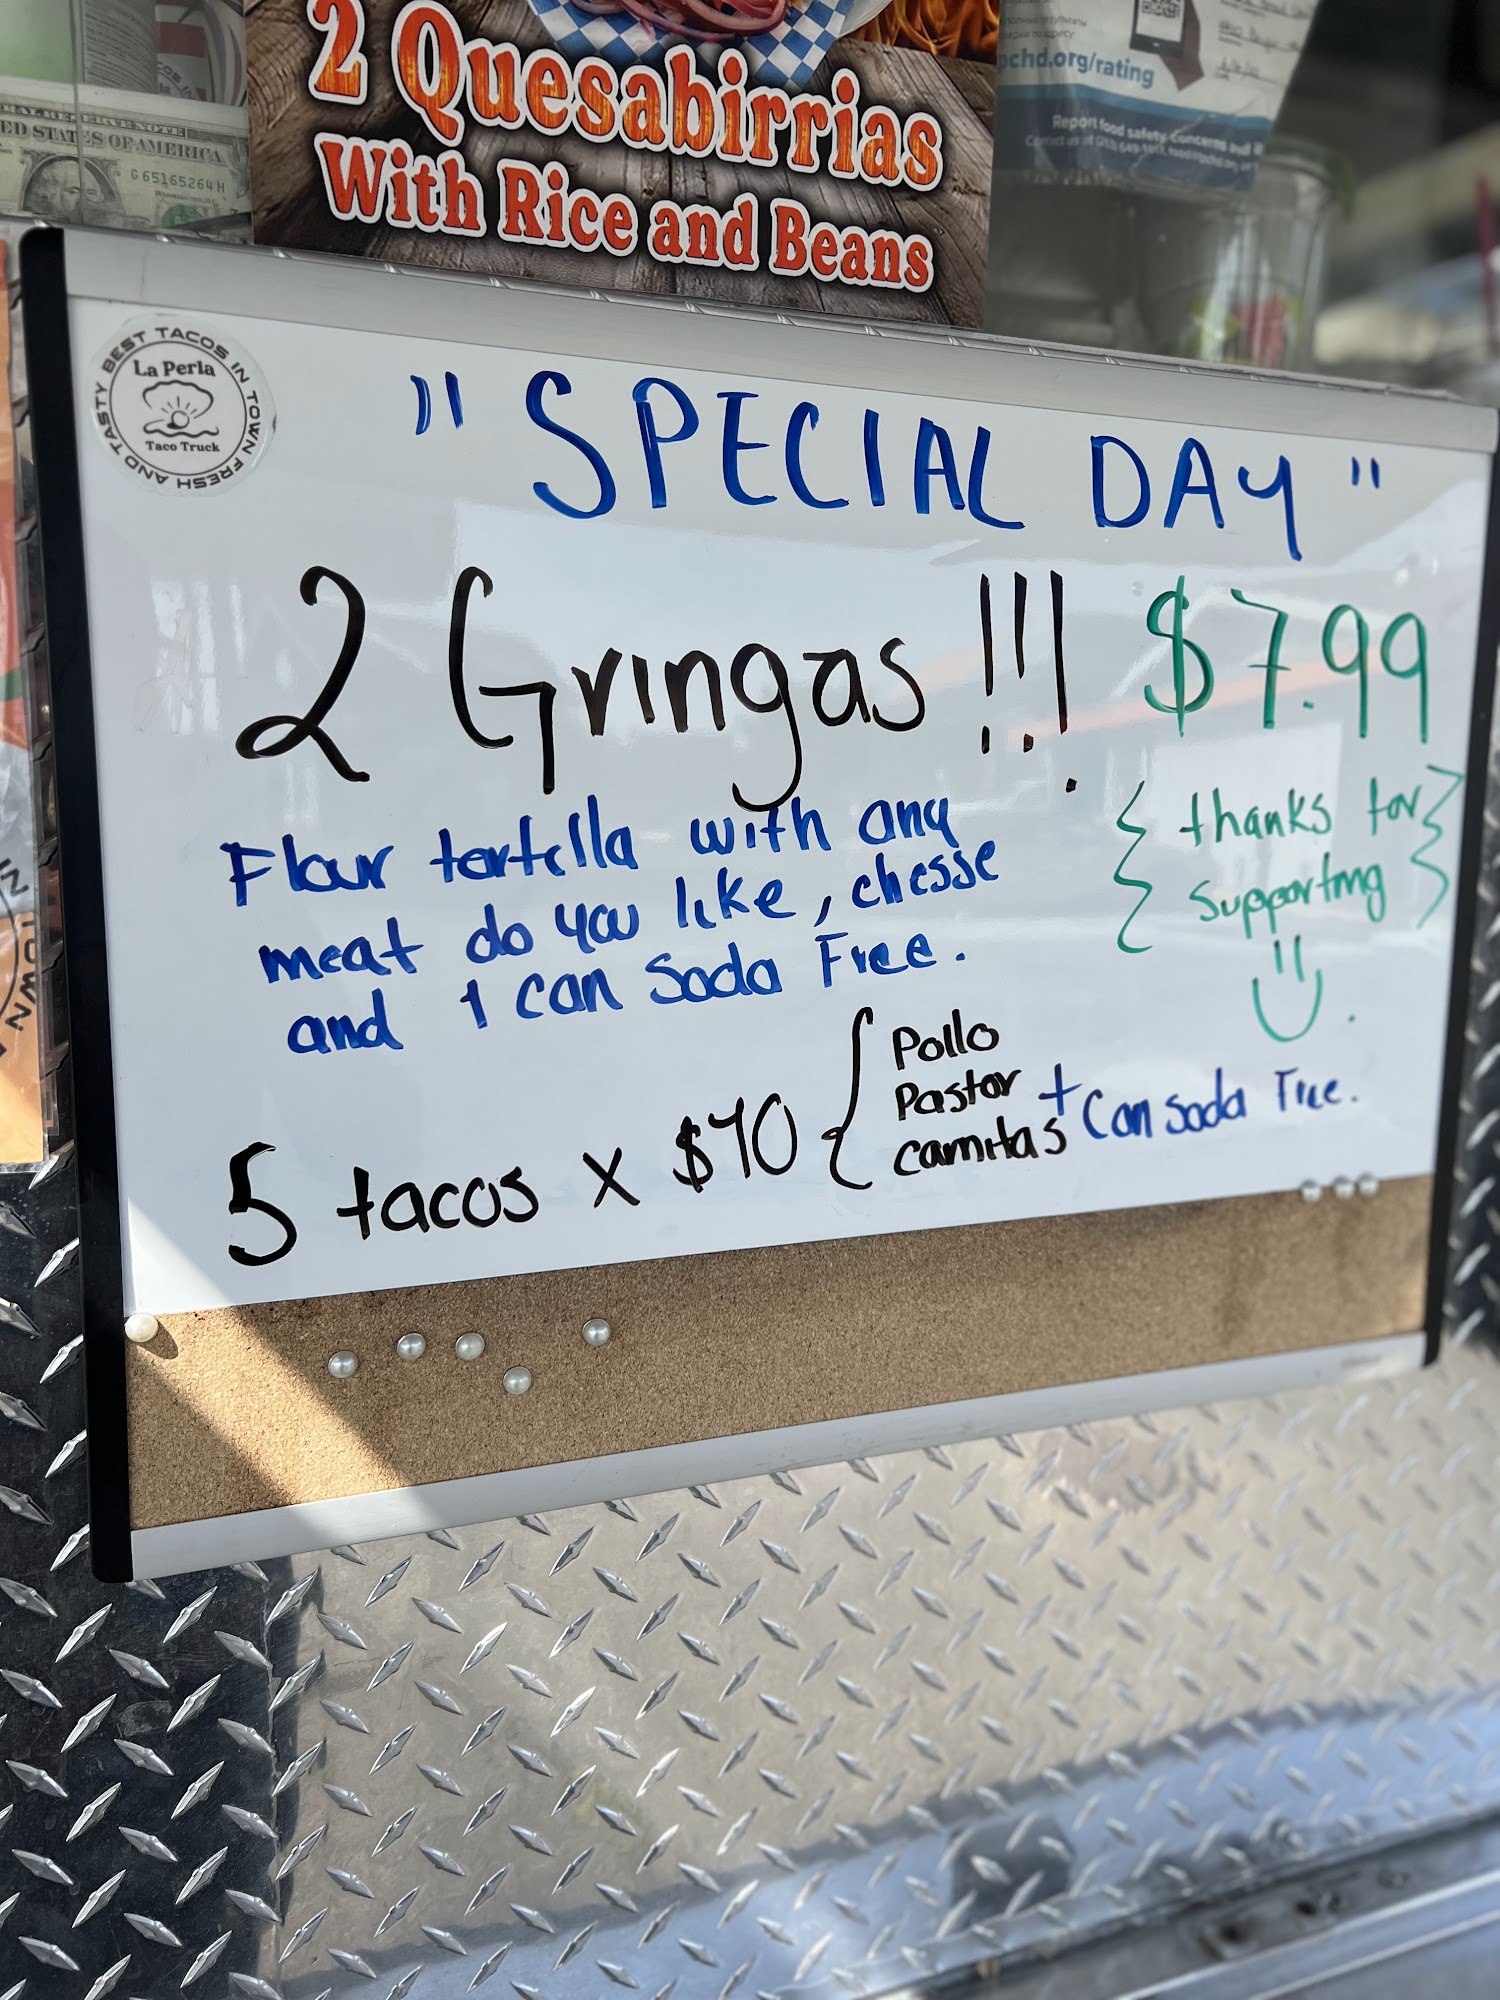 2 Quesabirrias
With Rice and Beans
pchd.org/rating
Report food safety concerns and
ED STATES OF AMERICA
G65165264H
BEST TACOS IN TOWN FRESH AND TASTY
La Perla
Taco Truck
"SPECIAL DAY"
2 Gringas !!! $7.99
Flour tortilla with any
meat do you like, chesse
and 1 can soda Free.
{ thanks for }
{ supporting }
5 tacos x $10 { Pollo
Pastor + Can soda Free.
carnitas
TOWN